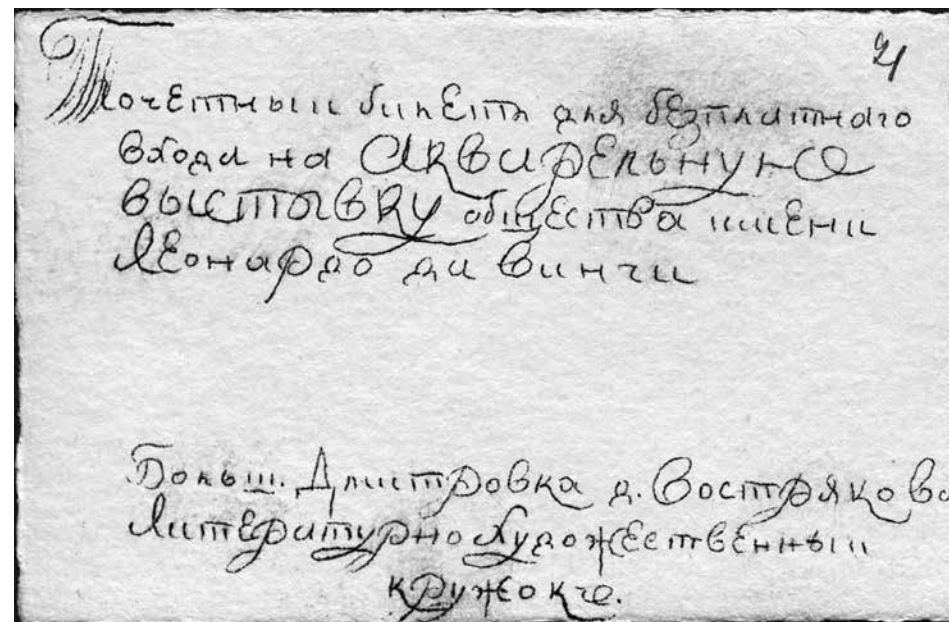 21
Почетный билетъ для безплатного
входа на Акварельную
выставку общества имени
Леонардо да Винчи
Больш. Дмитровка д. Вострякова
Литературно Художественный
кружокъ.